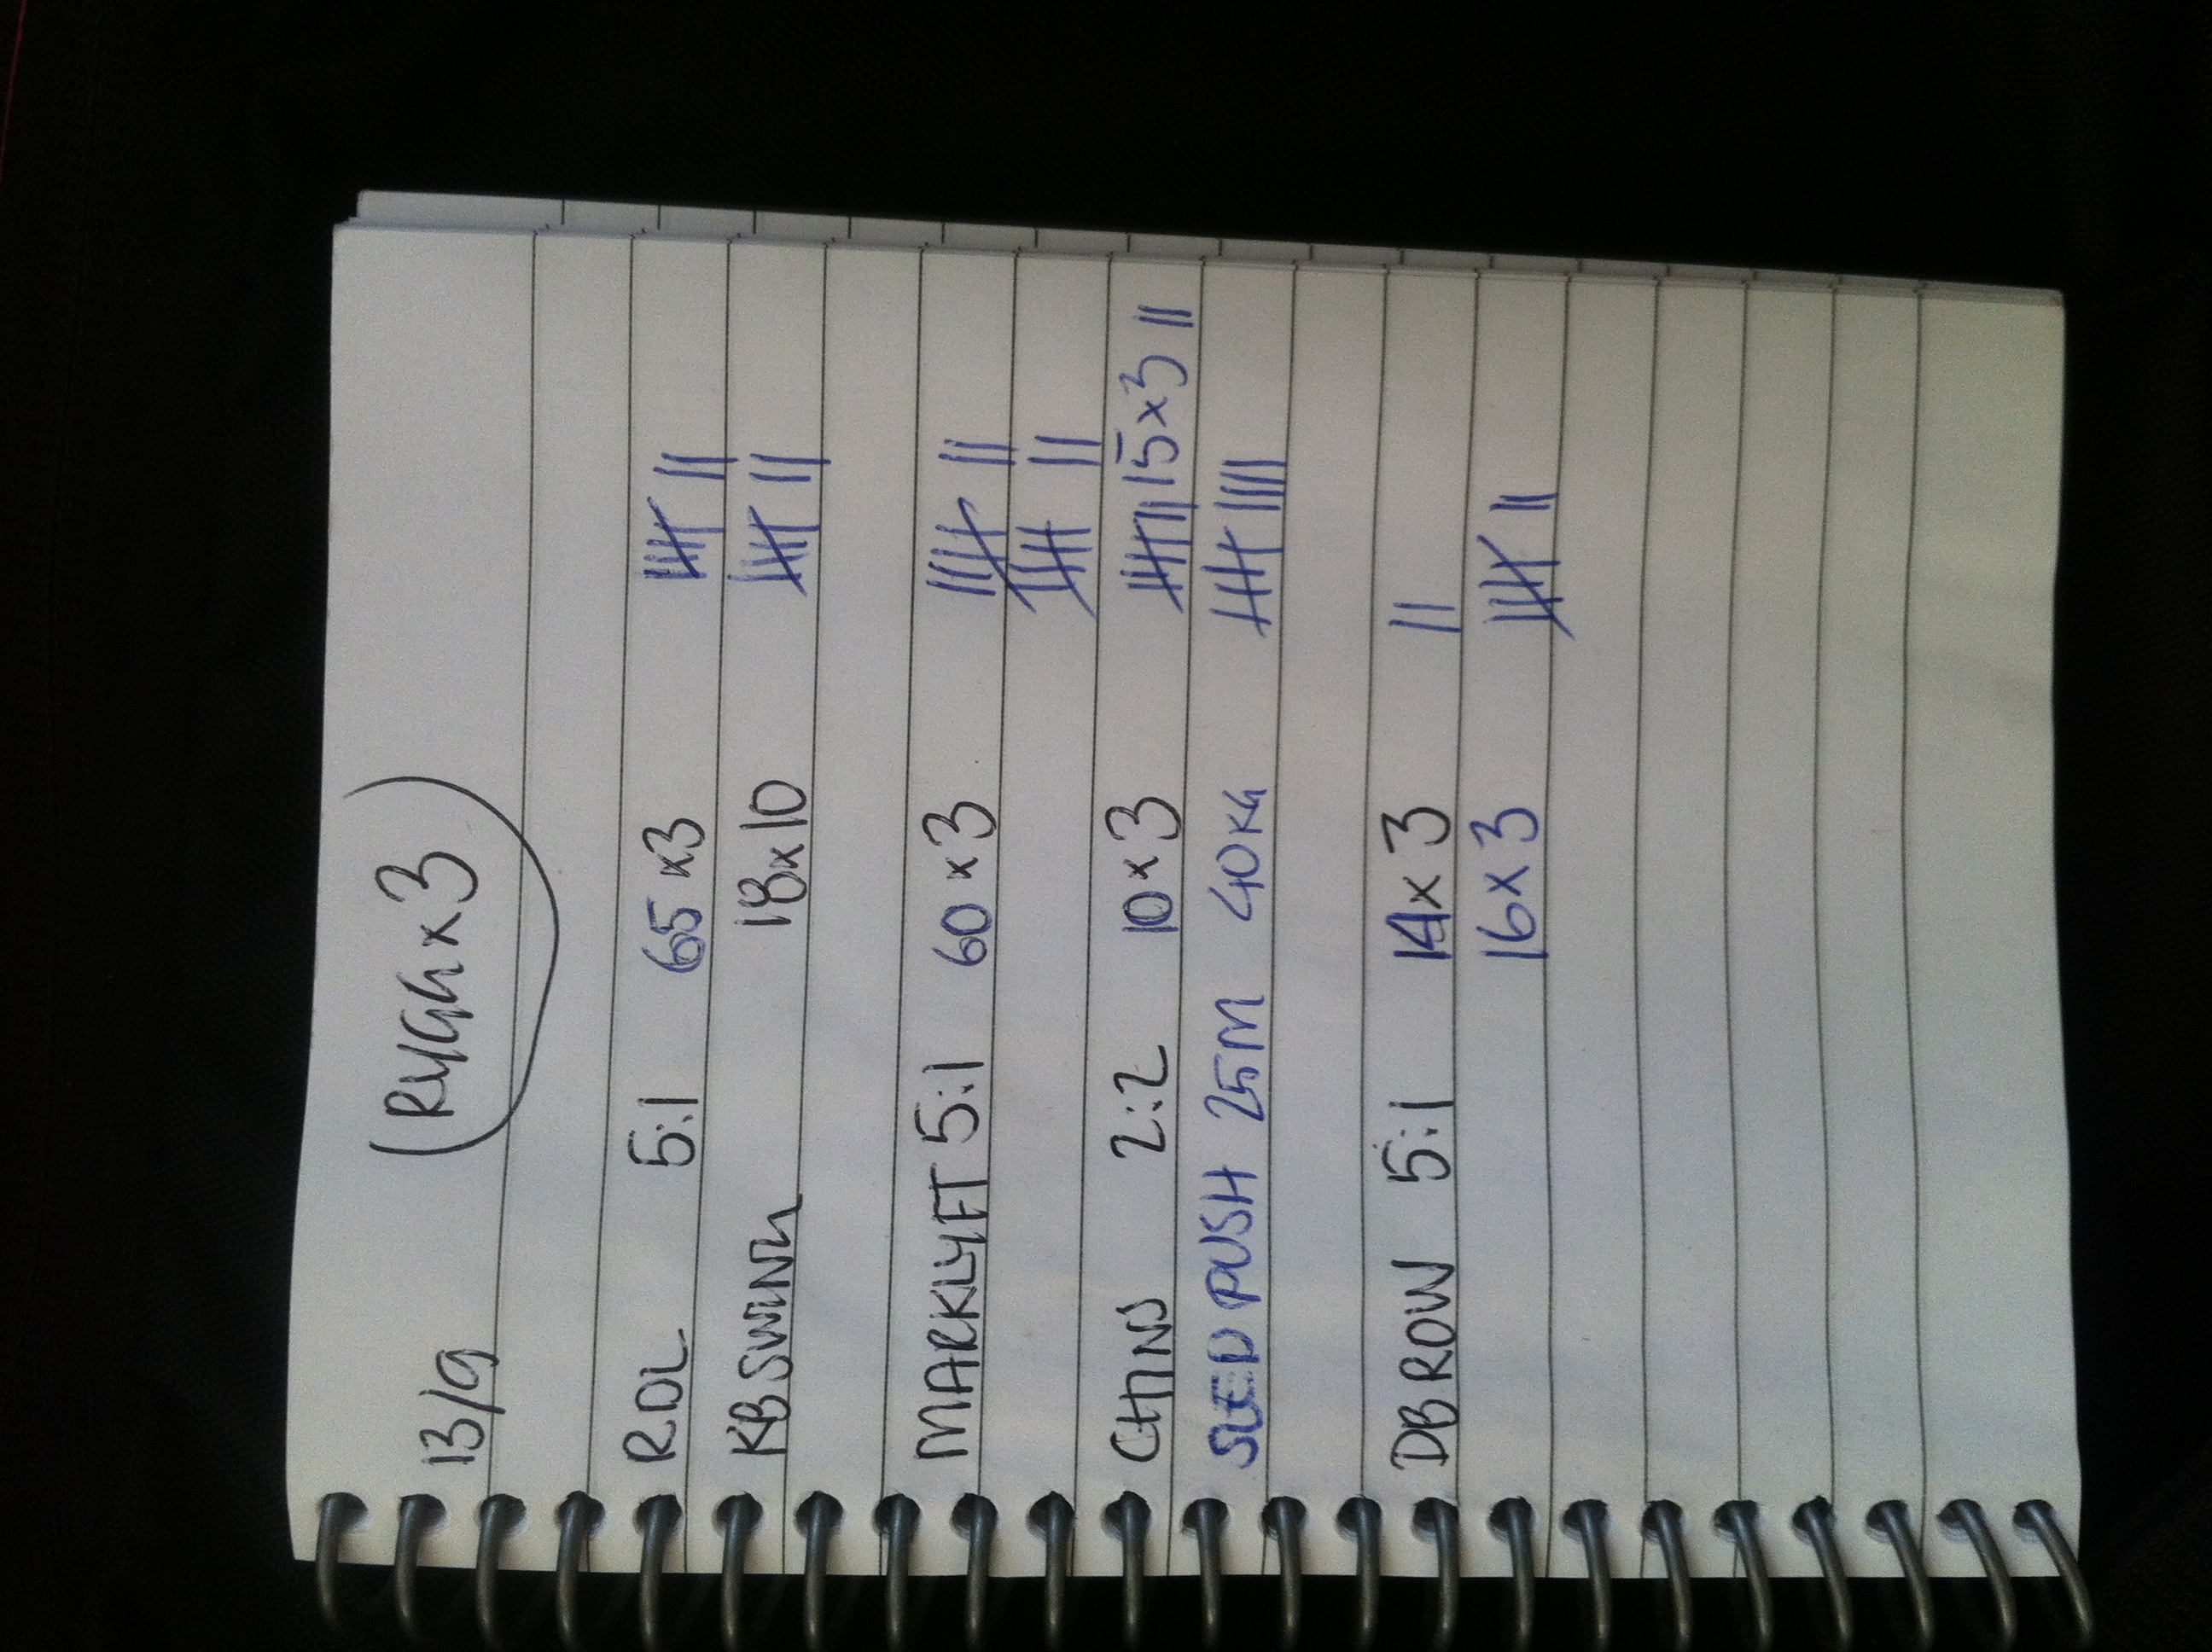 13/9 RYGG x 3
RDL 5:1 65 x 3 |||| ||
KB SWING 18 x 10 |||| ||
MARKLYFT 5:1 60 x 3 |||| ||
|||| ||
CHINS 2:2 10 x 3 |||| || 15 x 3 ||
SLED PUSH 25M 40KG |||| ||||
DB ROW 5:1 14 x 3 ||
16 x 3 |||| ||